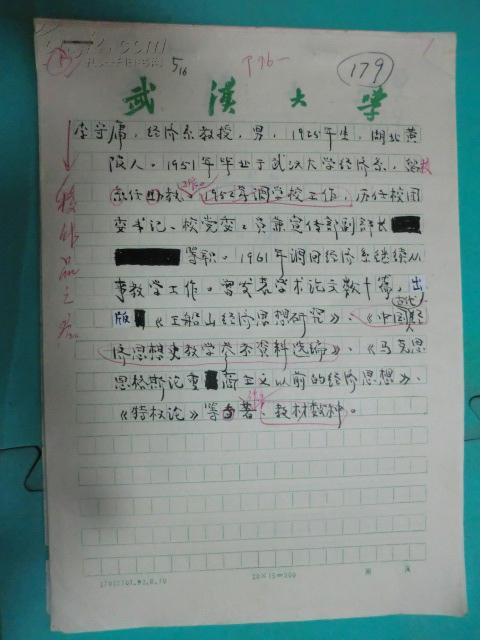 5/16
179
武漢大学
李守庸,经济系教授,男,1925年生,湖北黄
陂人。1951年毕业于武汉大学经济系,留校
任助教。1952年调学校工作,历任校团
委书记、校党委
宣传部副部长
等职。1961年调回经济系继续从
事教学工作。曾发表学术论文数十篇,出
版《王船山经济思想研究》、《中国近代经
济思想史教学参考资料选编》、《马克思
恩格斯论重商主义以前的经济思想》、
《特权论》等专著、教材数种。
20×15=300